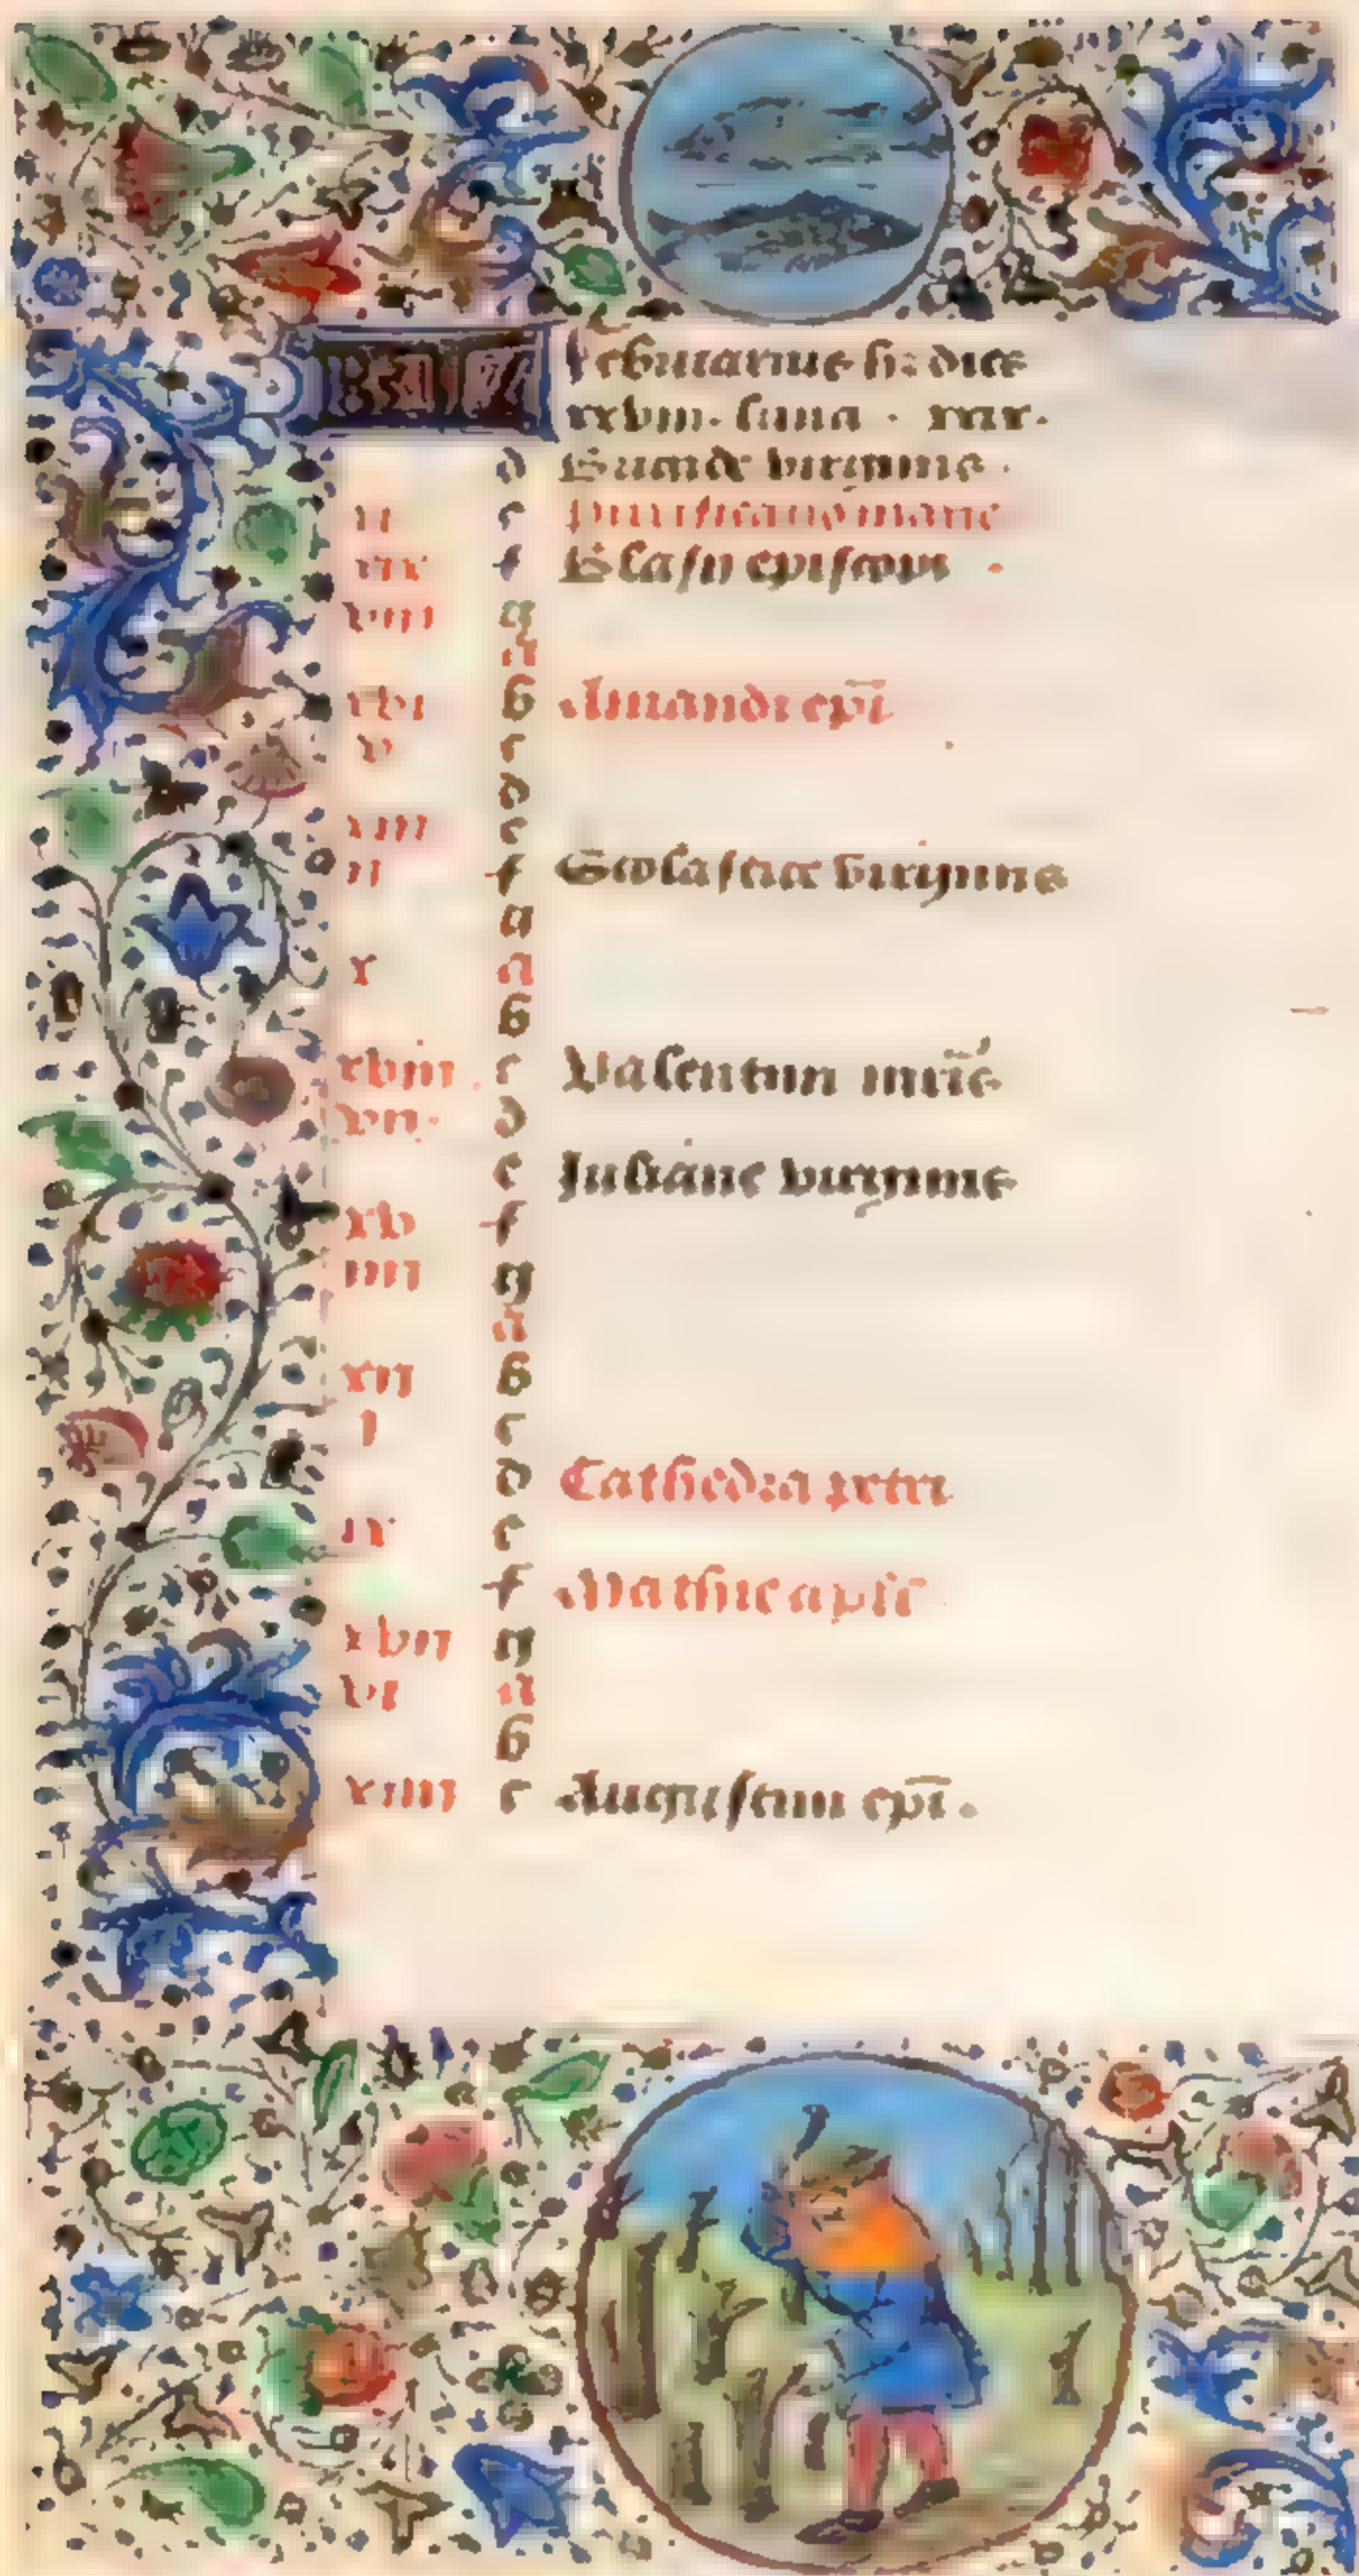 KL februarius h; dies
xxviii. luna . xxix.
d Brigide virginis .
xi e purificatio marie
xix f Blasii episcopi .
viii g
A
xvi b Amandi epi
v c
d
xiii e
ii f Scolastice virginis
g
x A
b
xviii . c Valentini mris
vii . d
e Juliane virginis
xv f
iiii g
A
xii b
i c
d Cathedra petri
ix e
f Mathie apli
xvii g
vi A
b
xiiii c Augustini epi .